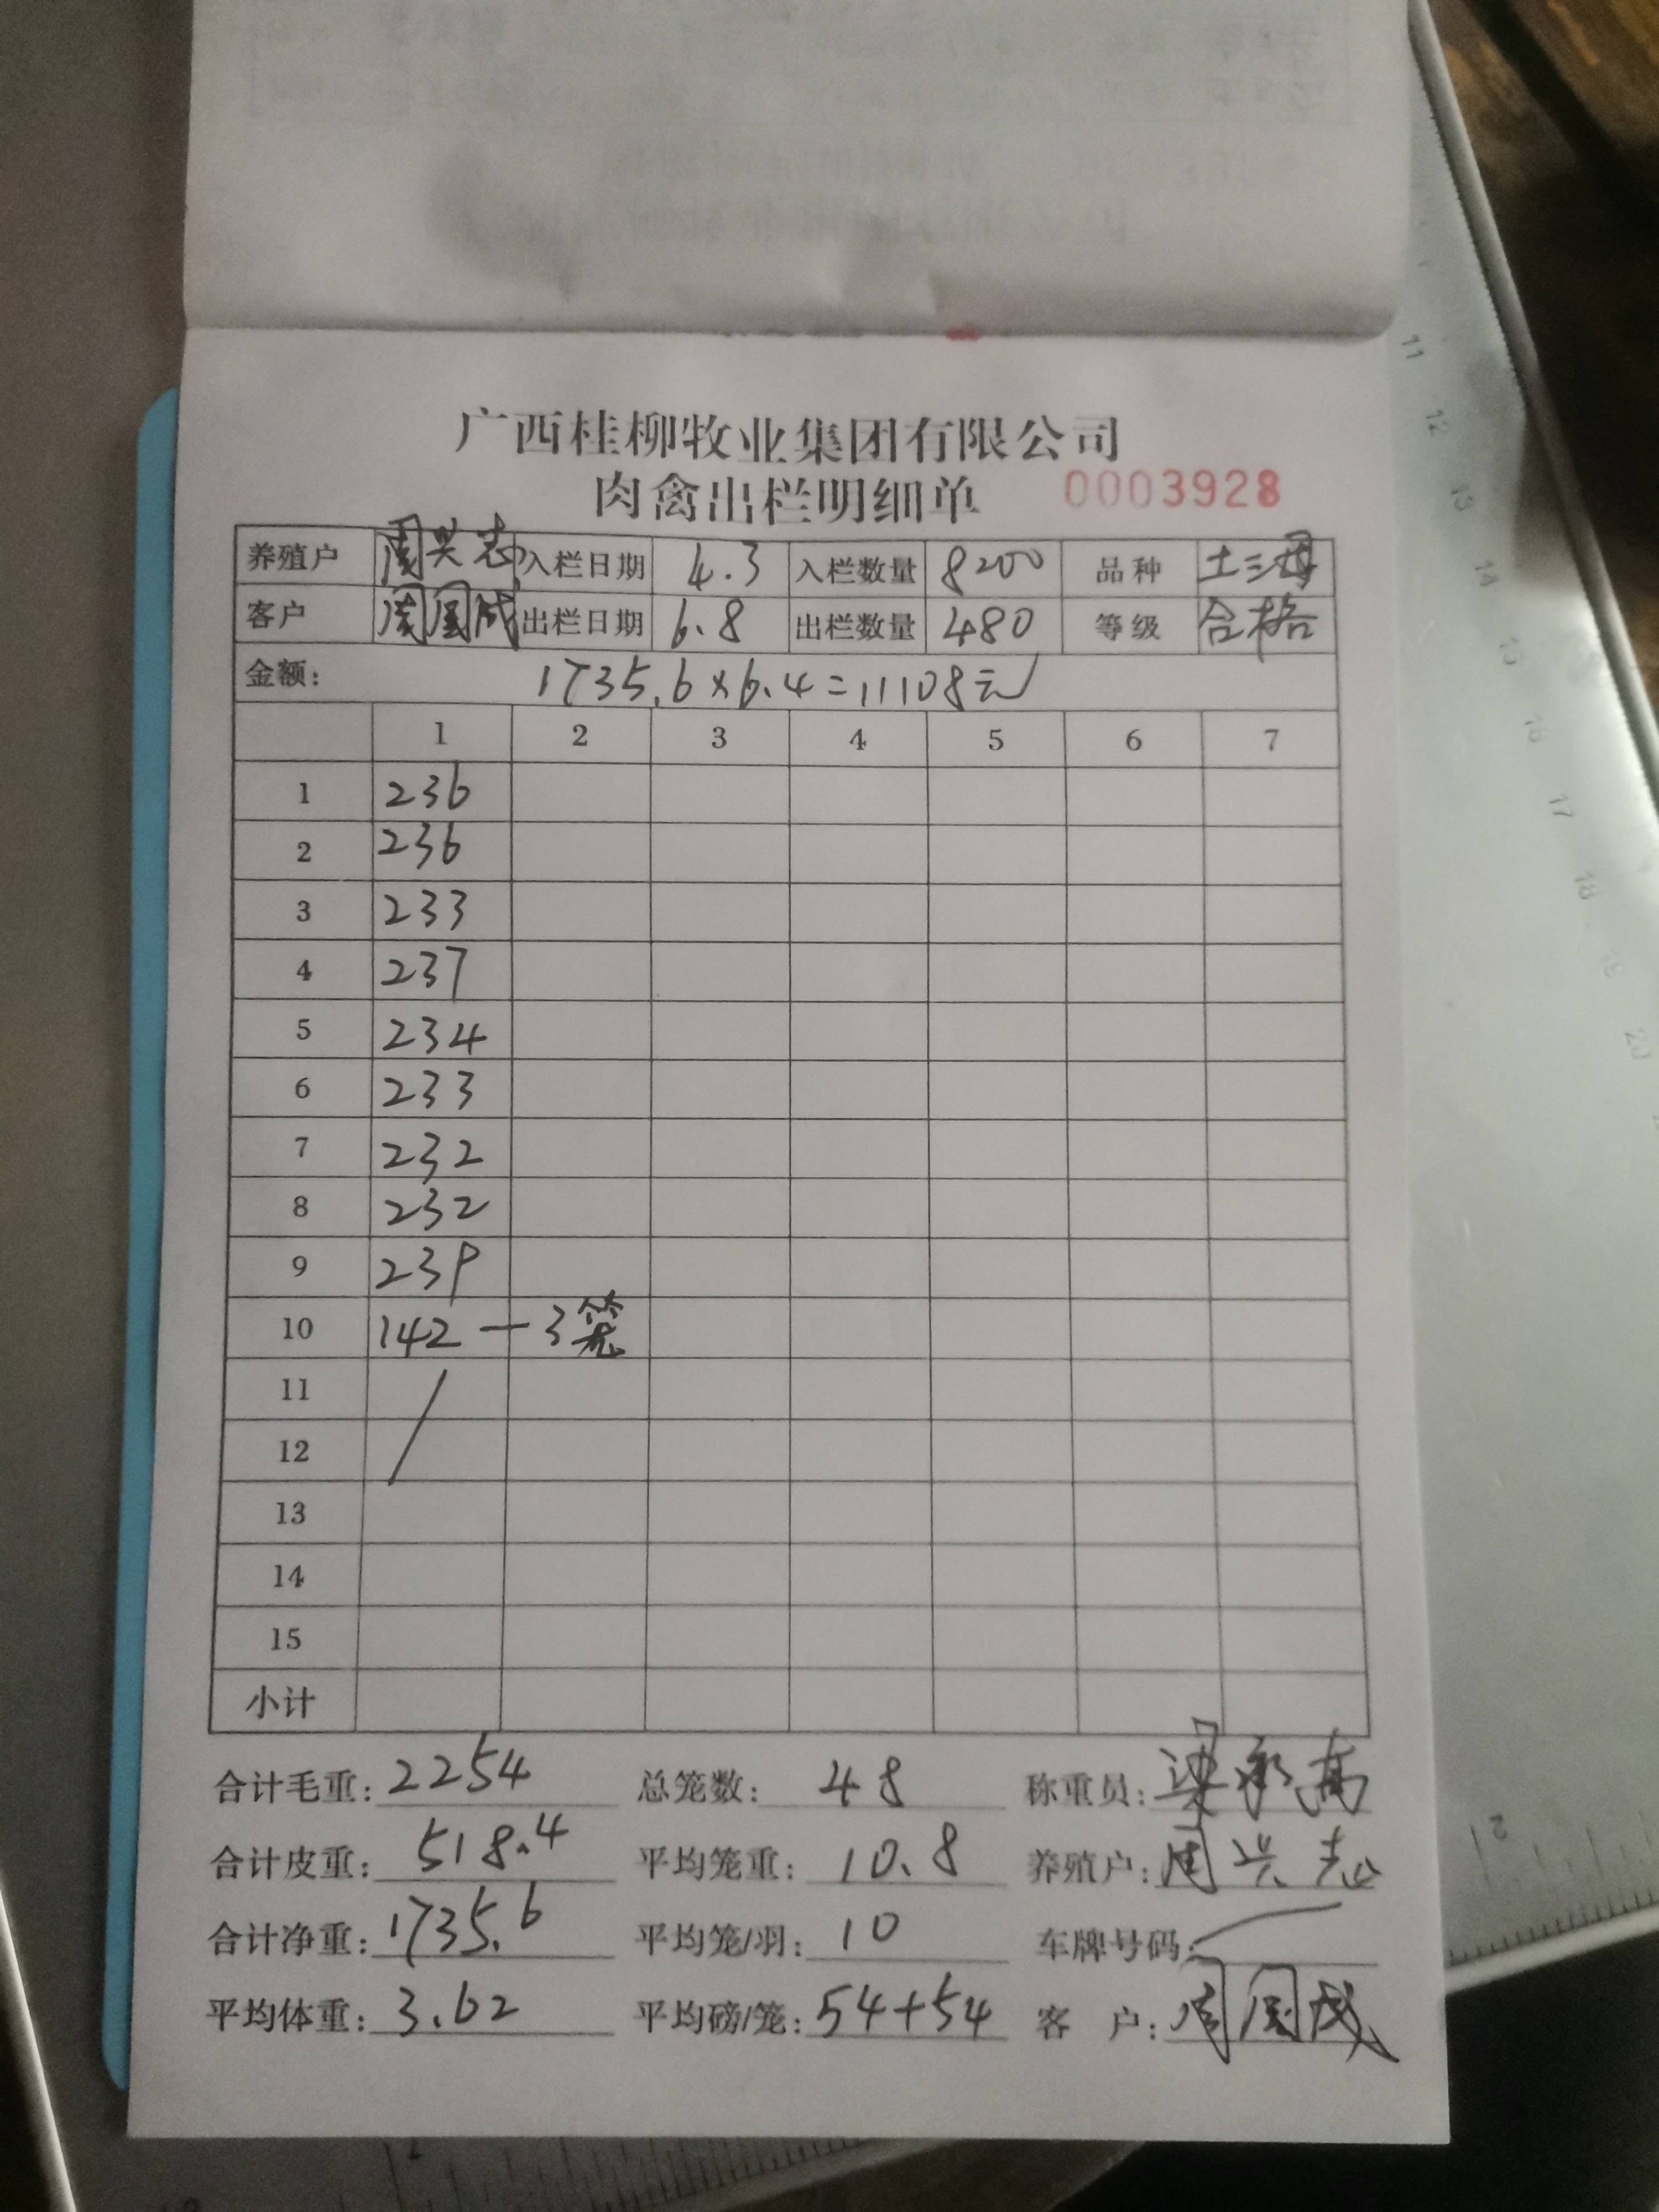 广西桂柳牧业集团有限公司
肉禽出栏明细单 0003928
养殖户 周兴志 入栏日期 4.3 入栏数量 8200 品种 土三海
客户 周国成 出栏日期 6.8 出栏数量 480 等级 合格
金额: 1735.6×6.4=11108元
1 2 3 4 5 6 7
1 236
2 236
3 233
4 237
5 234
6 233
7 232
8 232
9 239
10 142 — 3笼
11
12
13
14
15
小计
合计毛重: 2254 总笼数: 48 称重员: 梁承高
合计皮重: 518.4 平均笼重: 10.8 养殖户: 周兴志
合计净重: 1735.6 平均笼/羽: 10 车牌号码:
平均体重: 3.62 平均磅/笼: 54+54 客户: 周国成